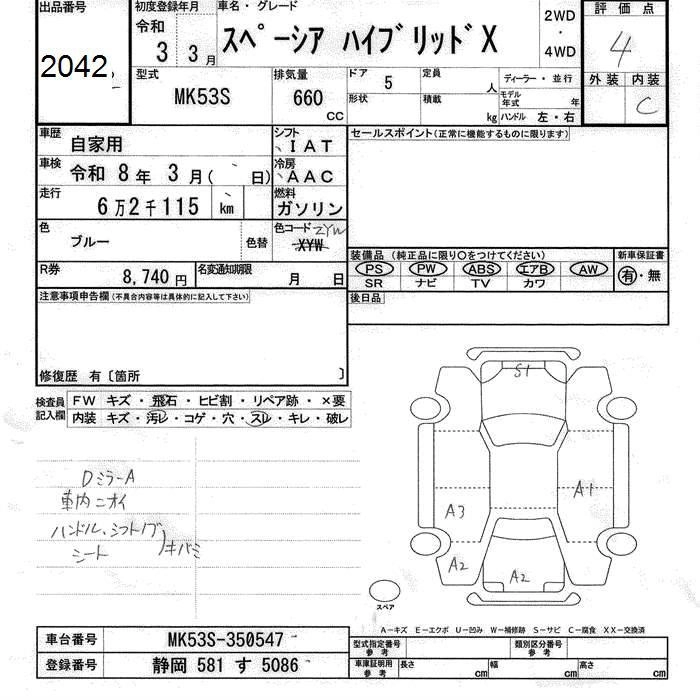 出品番号
2042
初度登録年月
令和
3 3月
車名・グレード
スペーシア ハイブリッドX
2WD
・
4WD
評価点
4
外装 内装
C
型式
MK53S
排気量
660
CC
ドア 5
形状
定員 人
積載 kg
ディーラー・並行
モデル年式 年
ハンドル 左・右
車歴
自家用
シフト
IAT
車検
令和 8年 3月( 日)
冷房
AAC
走行
6万2千115 km
燃料
ガソリン
色
ブルー
色替
色コード ZYW
XYW
R券
8,740円
名変通知期限
月 日
セールスポイント(正常に機能するものに限ります)
装備品(純正品に限り○をつけてください)
PS PW ABS エアB AW
SR ナビ TV カワ
新車保証書
有・無
後日品
注意事項申告欄(不具合内容等は具体的に記入して下さい)
修復歴 有〔箇所 〕
検査員記入欄
FW キズ・飛石・ヒビ割・リペア跡・×要
内装 キズ・汚レ・コゲ・穴・スレ・キレ・破レ
DミラーA
車内ニオイ
ハンドル、シフトノブ
シート
キバミ
S1
A3
A1
A2
A2
スペア
A−キズ E−エクボ U−凹み W−補修跡 S−サビ C−腐食 XX−交換済
車台番号
MK53S-350547
登録番号
静岡 581 す 5086
型式指定番号
参考
類別区分番号
参考
車庫証明用
参考
長さ cm
幅 cm
高さ cm